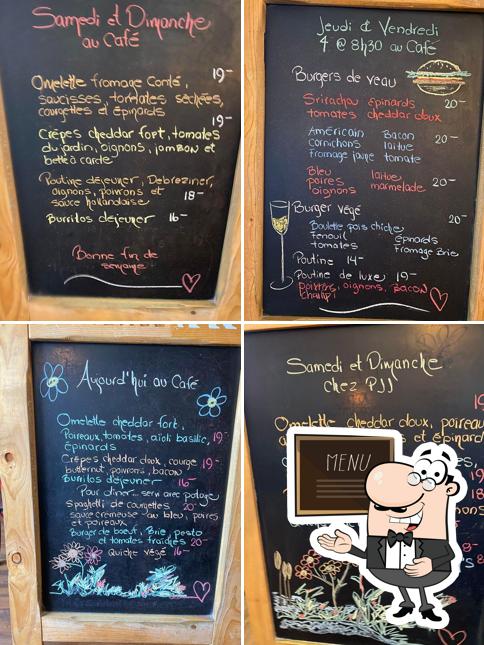 Samedi et Dimanche
au Café
Omelette fromage Comté, 19-
saucisses, tomates séchées,
courgettes et épinards
19-
Crêpes cheddar fort, tomates
du jardin, oignons, jambon et
bette à carde
Poutine déjeuner, Debreziner,
oignons, poivrons et 18-
sauce hollandaise
Burritos déjeuner 16-
Bonne fin de
semaine
Jeudi & Vendredi
4 @ 8h30 au Café
Burgers de veau
Sriracha épinards 20-
tomates cheddar doux
Américain Bacon 20-
cornichons laitue
fromage jaune tomate
Bleu laitue,
poires marmelade 20-
oignons
Burger végé 20-
Boulette pois chiche
fenouil épinards
tomates fromage Brie
Poutine 14-
Poutine de luxe 19-
poivrons, oignons, bacon
champi
Aujourd'hui au Café
Omelette cheddar fort,
Poireaux, tomates, aïoli basilic, 19-
épinards
Crêpes cheddar doux, courge 19-
butternut, poivrons, bacon
Burritos déjeuner 16-
Pour dîner... servi avec potage
Spaghetti de courgettes 20-
sauce crémeuse au bleu, poires
et poireaux
Burger de boeuf, Brie, pesto
et tomates fraîches 20-
Quiche végé 16-
Samedi et Dimanche
chez PJJ
Omelette cheddar doux, poireau
et épinard
MENU